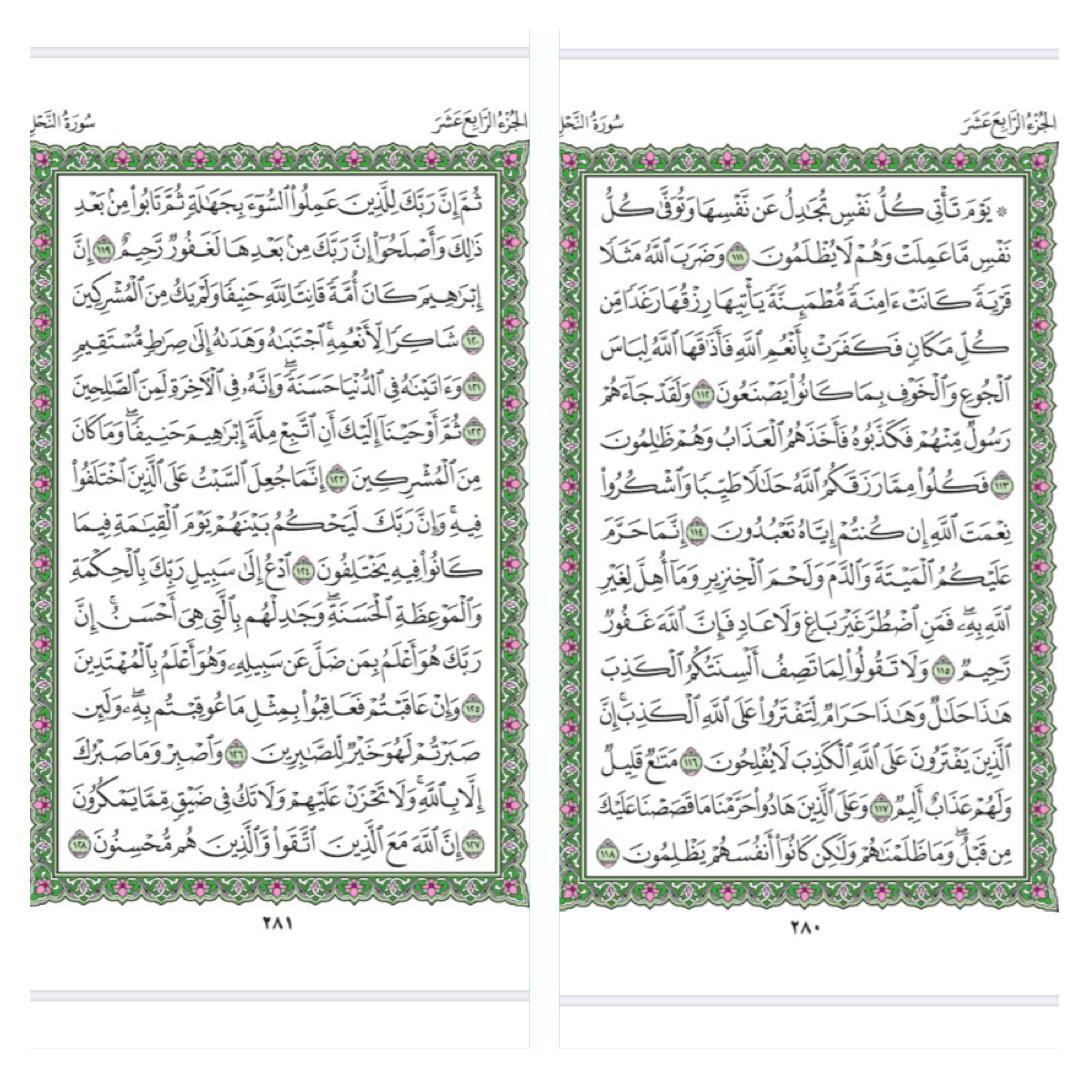 الجُزْءُ الرَّابِعَ عَشَرَ
سُورَةُ النَّحْلِ
۞ يَوْمَ تَأْتِي كُلُّ نَفْسٖ تُجَٰدِلُ عَن نَّفْسِهَا وَتُوَفَّىٰ كُلُّ
نَفْسٖ مَّا عَمِلَتْ وَهُمْ لَا يُظْلَمُونَ ١١١ وَضَرَبَ ٱللَّهُ مَثَلٗا
قَرْيَةٗ كَانَتْ ءَامِنَةٗ مُّطْمَئِنَّةٗ يَأْتِيهَا رِزْقُهَا رَغَدٗا مِّن
كُلِّ مَكَانٖ فَكَفَرَتْ بِأَنْعُمِ ٱللَّهِ فَأَذَٰقَهَا ٱللَّهُ لِبَاسَ
ٱلْجُوعِ وَٱلْخَوْفِ بِمَا كَانُواْ يَصْنَعُونَ ١١٢ وَلَقَدْ جَآءَهُمْ
رَسُولٞ مِّنْهُمْ فَكَذَّبُوهُ فَأَخَذَهُمُ ٱلْعَذَابُ وَهُمْ ظَٰلِمُونَ
١١٣ فَكُلُواْ مِمَّا رَزَقَكُمُ ٱللَّهُ حَلَٰلٗا طَيِّبٗا وَٱشْكُرُواْ
نِعْمَتَ ٱللَّهِ إِن كُنتُمْ إِيَّاهُ تَعْبُدُونَ ١١٤ إِنَّمَا حَرَّمَ
عَلَيْكُمُ ٱلْمَيْتَةَ وَٱلدَّمَ وَلَحْمَ ٱلْخِنزِيرِ وَمَآ أُهِلَّ لِغَيْرِ
ٱللَّهِ بِهِۦۖ فَمَنِ ٱضْطُرَّ غَيْرَ بَاغٖ وَلَا عَادٖ فَإِنَّ ٱللَّهَ غَفُورٞ
رَّحِيمٞ ١١٥ وَلَا تَقُولُواْ لِمَا تَصِفُ أَلْسِنَتُكُمُ ٱلْكَذِبَ
هَٰذَا حَلَٰلٞ وَهَٰذَا حَرَامٞ لِّتَفْتَرُواْ عَلَى ٱللَّهِ ٱلْكَذِبَۚ إِنَّ
ٱلَّذِينَ يَفْتَرُونَ عَلَى ٱللَّهِ ٱلْكَذِبَ لَا يُفْلِحُونَ ١١٦ مَتَٰعٞ قَلِيلٞ
وَلَهُمْ عَذَابٌ أَلِيمٞ ١١٧ وَعَلَى ٱلَّذِينَ هَادُواْ حَرَّمْنَا مَا قَصَصْنَا عَلَيْكَ
مِن قَبْلُۖ وَمَا ظَلَمْنَٰهُمْ وَلَٰكِن كَانُوٓاْ أَنفُسَهُمْ يَظْلِمُونَ ١١٨
٢٨٠
الجُزْءُ الرَّابِعَ عَشَرَ
سُورَةُ النَّحْلِ
ثُمَّ إِنَّ رَبَّكَ لِلَّذِينَ عَمِلُواْ ٱلسُّوٓءَ بِجَهَٰلَةٖ ثُمَّ تَابُواْ مِنۢ بَعْدِ
ذَٰلِكَ وَأَصْلَحُوٓاْ إِنَّ رَبَّكَ مِنۢ بَعْدِهَا لَغَفُورٞ رَّحِيمٌ ١١٩ إِنَّ
إِبْرَٰهِيمَ كَانَ أُمَّةٗ قَانِتٗا لِّلَّهِ حَنِيفٗا وَلَمْ يَكُ مِنَ ٱلْمُشْرِكِينَ
١٢٠ شَاكِرٗا لِّأَنْعُمِهِۚ ٱجْتَبَىٰهُ وَهَدَىٰهُ إِلَىٰ صِرَٰطٖ مُّسْتَقِيمٖ
١٢١ وَءَاتَيْنَٰهُ فِي ٱلدُّنْيَا حَسَنَةٗۖ وَإِنَّهُۥ فِي ٱلْأٓخِرَةِ لَمِنَ ٱلصَّٰلِحِينَ
١٢٢ ثُمَّ أَوْحَيْنَآ إِلَيْكَ أَنِ ٱتَّبِعْ مِلَّةَ إِبْرَٰهِيمَ حَنِيفٗاۖ وَمَا كَانَ
مِنَ ٱلْمُشْرِكِينَ ١٢٣ إِنَّمَا جُعِلَ ٱلسَّبْتُ عَلَى ٱلَّذِينَ ٱخْتَلَفُواْ
فِيهِۚ وَإِنَّ رَبَّكَ لَيَحْكُمُ بَيْنَهُمْ يَوْمَ ٱلْقِيَٰمَةِ فِيمَا
كَانُواْ فِيهِ يَخْتَلِفُونَ ١٢٤ ٱدْعُ إِلَىٰ سَبِيلِ رَبِّكَ بِٱلْحِكْمَةِ
وَٱلْمَوْعِظَةِ ٱلْحَسَنَةِۖ وَجَٰدِلْهُم بِٱلَّتِي هِيَ أَحْسَنُۚ إِنَّ
رَبَّكَ هُوَ أَعْلَمُ بِمَن ضَلَّ عَن سَبِيلِهِۦ وَهُوَ أَعْلَمُ بِٱلْمُهْتَدِينَ
١٢٥ وَإِنْ عَاقَبْتُمْ فَعَاقِبُواْ بِمِثْلِ مَا عُوقِبْتُم بِهِۦۖ وَلَئِن
صَبَرْتُمْ لَهُوَ خَيْرٞ لِّلصَّٰبِرِينَ ١٢٦ وَٱصْبِرْ وَمَا صَبْرُكَ
إِلَّا بِٱللَّهِۚ وَلَا تَحْزَنْ عَلَيْهِمْ وَلَا تَكُ فِي ضَيْقٖ مِّمَّا يَمْكُرُونَ
١٢٧ إِنَّ ٱللَّهَ مَعَ ٱلَّذِينَ ٱتَّقَواْ وَّٱلَّذِينَ هُم مُّحْسِنُونَ ١٢٨
٢٨١